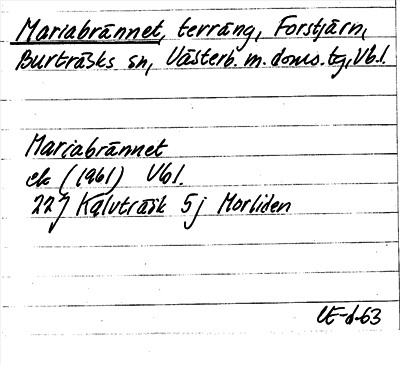 Mariabrännet, terräng, Forstjärn,
Burträsks sn, Västerb. m. doms. tg, Vbl.
Mariabrännet
ek (1961) Vbl.
22J Kalvträsk 5j Morliden
UE-d-63